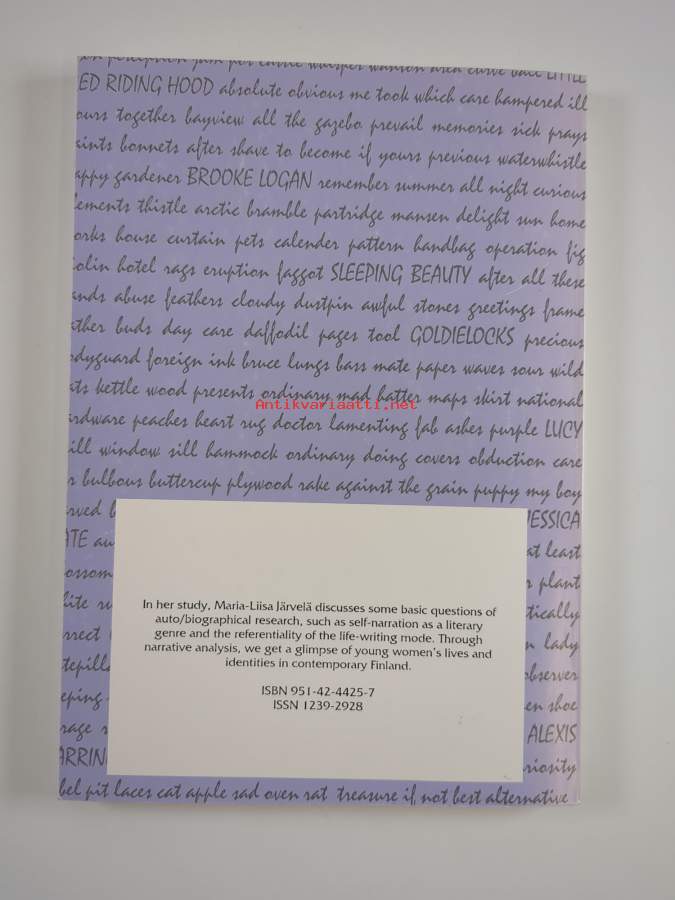 perception jam per carrie whisper wanton area curve ball LITTLE
ED RIDING HOOD absolute obvious me took which care hampered ill
ours together bayview all the gazebo prevail memories sick prays
aints bonnets after shave to become if yours previous waterwhistle
appy gardener BROOKE LOGAN remember summer all night curious
lements thistle arctic bramble partridge mansen delight sun home
orks house curtain pets calender pattern handbag operation fig
iolin hotel rags eruption faggot SLEEPING BEAUTY after all these
ands abuse feathers cloudy dustpin awful stones greetings frame
ather buds day care daffodil pages tool GOLDIELOCKS precious
odyguard foreign ink bruce lungs bass mate paper waves sour wild
ats kettle wood presents ordinary mad hatter maps skirt national
Antikvariaatti.net
ardware peaches heart rug doctor lamenting fab ashes purple LUCY
ill window sill hammock ordinary doing covers obduction care
r bulbous buttercup plywood rake against the grain puppy my boy
rved b JESSICA
ATE au at least
ossom r plant
hite ru tically
rrect n lady
tepill observer
eping en shoe
rage r ALEXIS
ARRIN riosity
bel pit laces cat apple sad oven rat treasure if not best alternative
In her study, Maria-Liisa Järvelä discusses some basic questions of
auto/biographical research, such as self-narration as a literary
genre and the referentiality of the life-writing mode. Through
narrative analysis, we get a glimpse of young women's lives and
identities in contemporary Finland.
ISBN 951-42-4425-7
ISSN 1239-2928